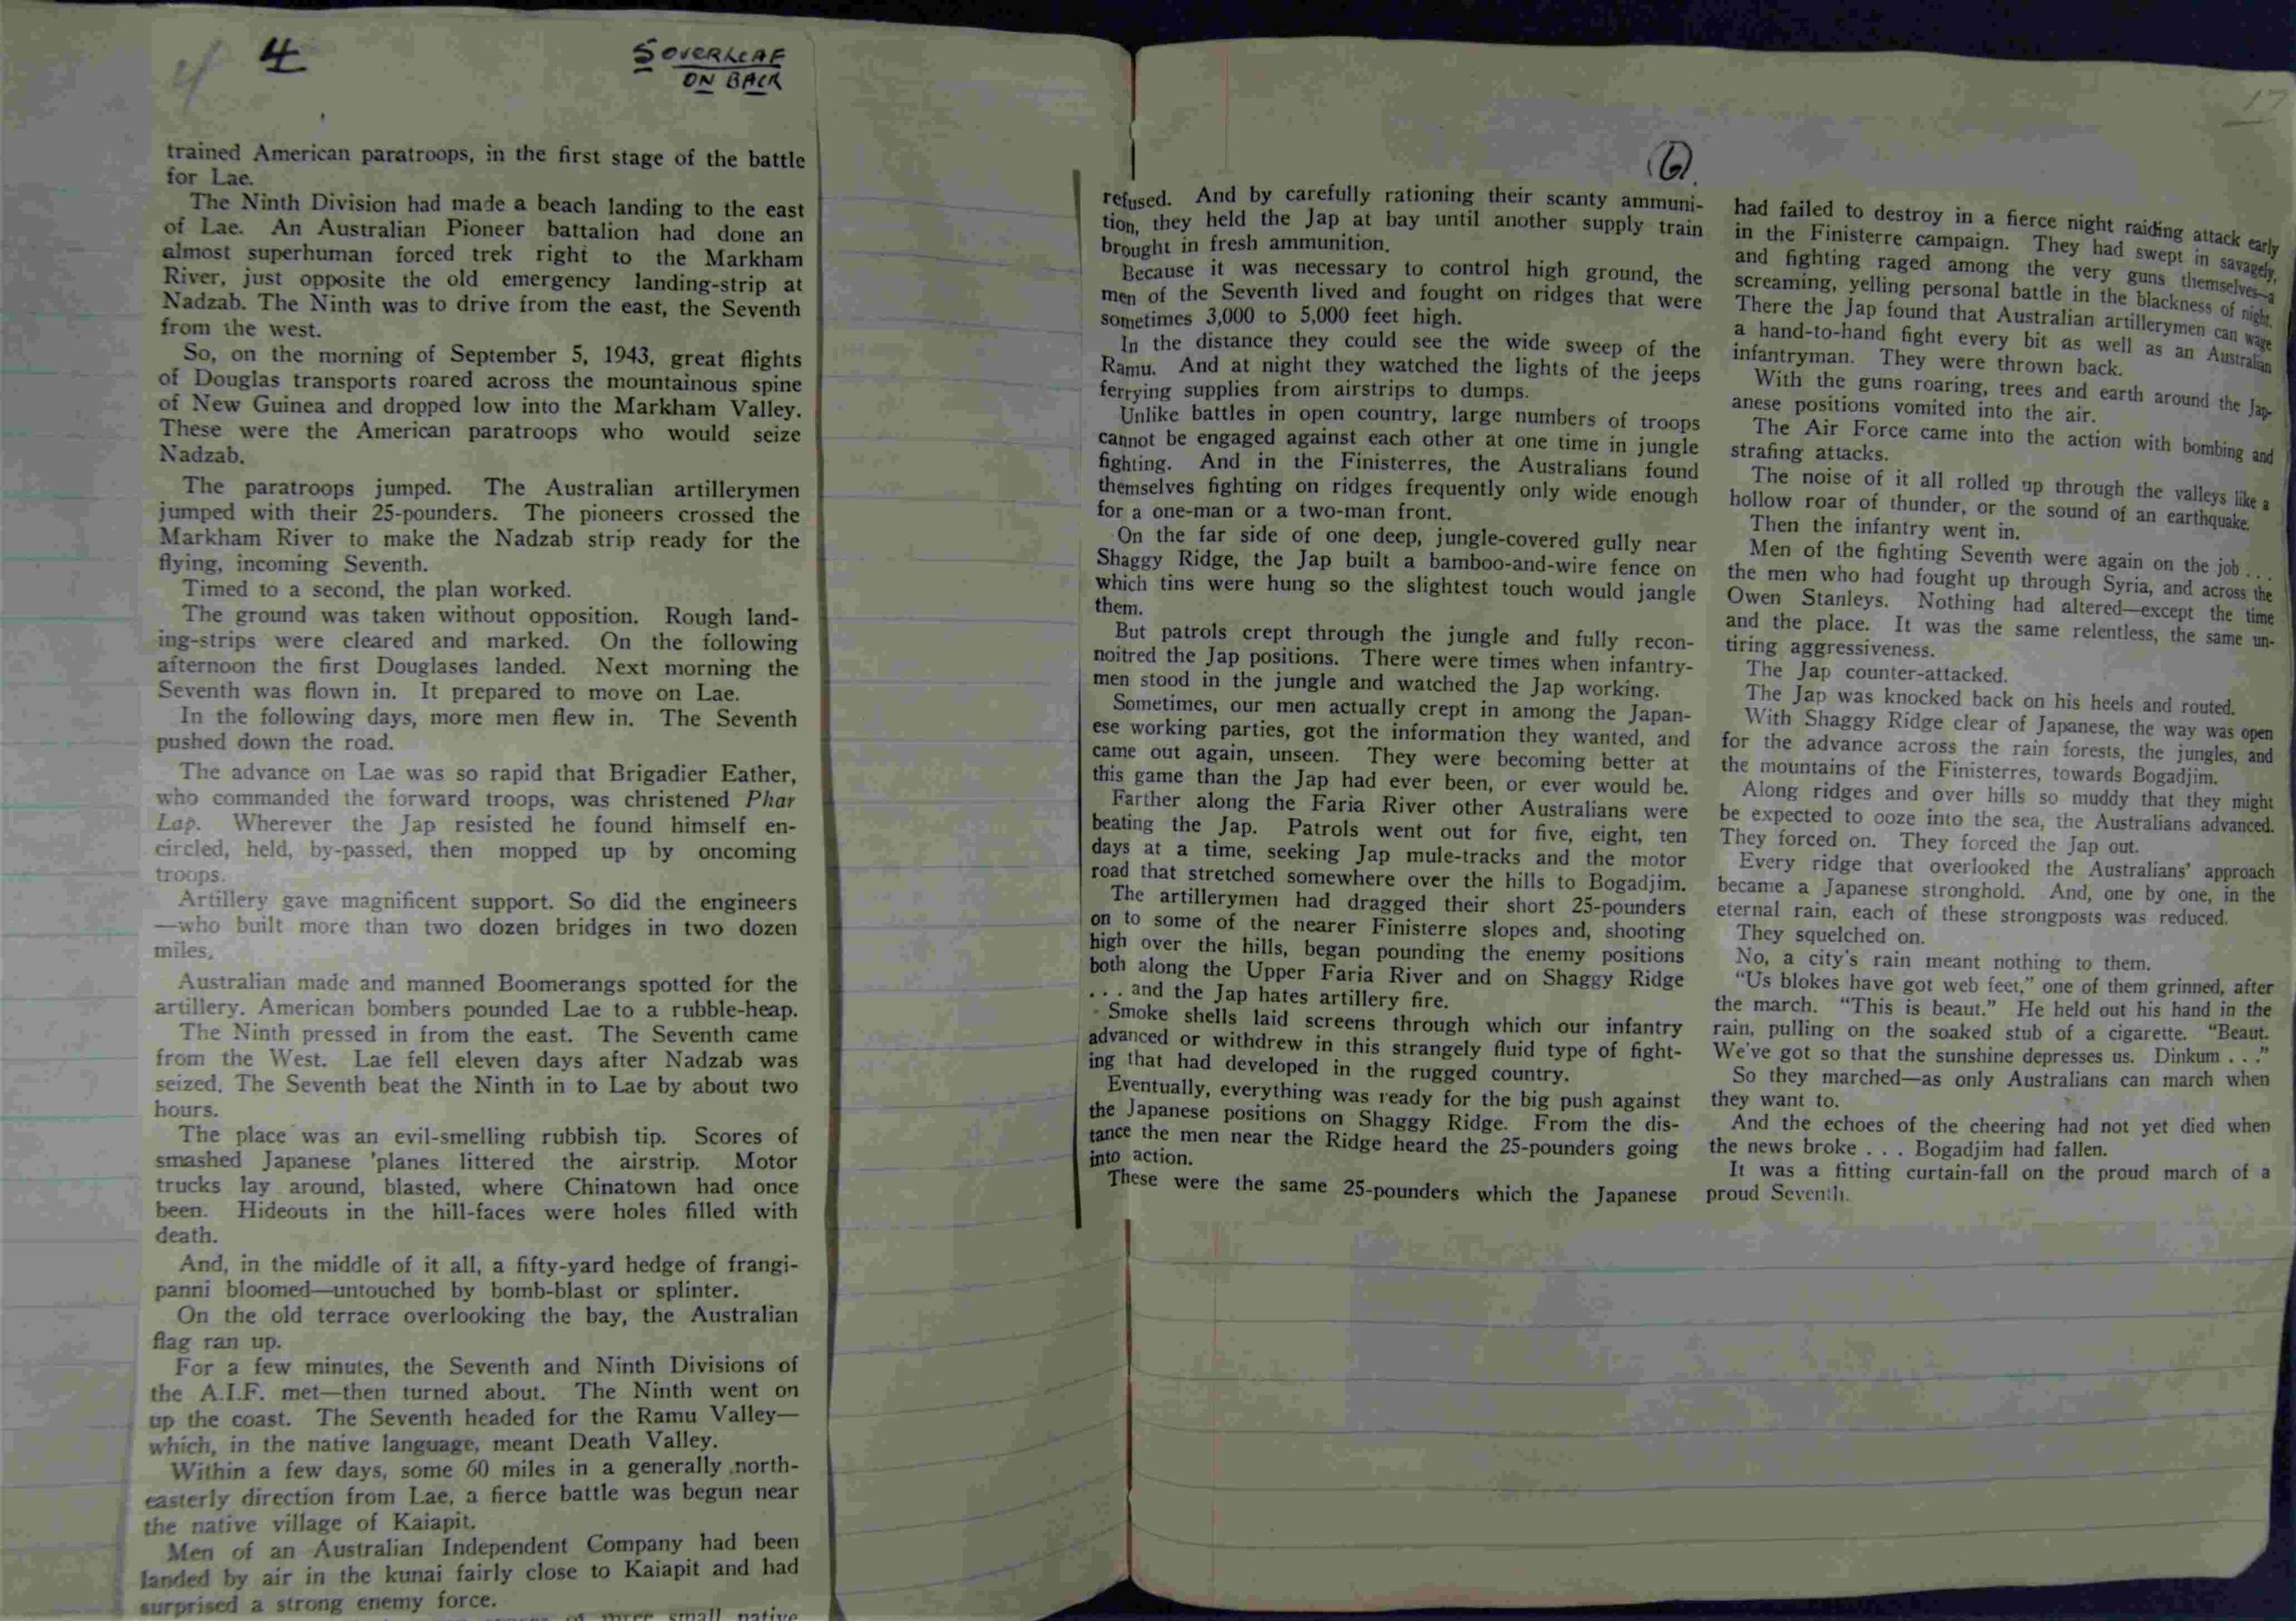 4
4
5 OVERLEAF
ON BACK
trained American paratroops, in the first stage of the battle
for Lae.
The Ninth Division had made a beach landing to the east
of Lae. An Australian Pioneer battalion had done an
almost superhuman forced trek right to the Markham
River, just opposite the old emergency landing-strip at
Nadzab. The Ninth was to drive from the east, the Seventh
from the west.
So, on the morning of September 5, 1943, great flights
of Douglas transports roared across the mountainous spine
of New Guinea and dropped low into the Markham Valley.
These were the American paratroops who would seize
Nadzab.
The paratroops jumped. The Australian artillerymen
jumped with their 25-pounders. The pioneers crossed the
Markham River to make the Nadzab strip ready for the
flying, incoming Seventh.
Timed to a second, the plan worked.
The ground was taken without opposition. Rough land-
ing-strips were cleared and marked. On the following
afternoon the first Douglases landed. Next morning the
Seventh was flown in. It prepared to move on Lae.
In the following days, more men flew in. The Seventh
pushed down the road.
The advance on Lae was so rapid that Brigadier Eather,
who commanded the forward troops, was christened Phar
Lap. Wherever the Jap resisted he found himself en-
circled, held, by-passed, then mopped up by oncoming
troops.
Artillery gave magnificent support. So did the engineers
—who built more than two dozen bridges in two dozen
miles.
Australian made and manned Boomerangs spotted for the
artillery. American bombers pounded Lae to a rubble-heap.
The Ninth pressed in from the east. The Seventh came
from the West. Lae fell eleven days after Nadzab was
seized. The Seventh beat the Ninth in to Lae by about two
hours.
The place was an evil-smelling rubbish tip. Scores of
smashed Japanese 'planes littered the airstrip. Motor
trucks lay around, blasted, where Chinatown had once
been. Hideouts in the hill-faces were holes filled with
death.
And, in the middle of it all, a fifty-yard hedge of frangi-
panni bloomed—untouched by bomb-blast or splinter.
On the old terrace overlooking the bay, the Australian
flag ran up.
For a few minutes, the Seventh and Ninth Divisions of
the A.I.F. met—then turned about. The Ninth went on
up the coast. The Seventh headed for the Ramu Valley—
which, in the native language, meant Death Valley.
Within a few days, some 60 miles in a generally north-
easterly direction from Lae, a fierce battle was begun near
the native village of Kaiapit.
Men of an Australian Independent Company had been
landed by air in the kunai fairly close to Kaiapit and had
surprised a strong enemy force.
small native
17
6
refused. And by carefully rationing their scanty ammuni-
tion, they held the Jap at bay until another supply train
brought in fresh ammunition.
Because it was necessary to control high ground, the
men of the Seventh lived and fought on ridges that were
sometimes 3,000 to 5,000 feet high.
In the distance they could see the wide sweep of the
Ramu. And at night they watched the lights of the jeeps
ferrying supplies from airstrips to dumps.
Unlike battles in open country, large numbers of troops
cannot be engaged against each other at one time in jungle
fighting. And in the Finisterres, the Australians found
themselves fighting on ridges frequently only wide enough
for a one-man or a two-man front.
On the far side of one deep, jungle-covered gully near
Shaggy Ridge, the Jap built a bamboo-and-wire fence on
which tins were hung so the slightest touch would jangle
them.
But patrols crept through the jungle and fully recon-
noitred the Jap positions. There were times when infantry-
men stood in the jungle and watched the Jap working.
Sometimes, our men actually crept in among the Japan-
ese working parties, got the information they wanted, and
came out again, unseen. They were becoming better at
this game than the Jap had ever been, or ever would be.
Farther along the Faria River other Australians were
beating the Jap. Patrols went out for five, eight, ten
days at a time, seeking Jap mule-tracks and the motor
road that stretched somewhere over the hills to Bogadjim.
The artillerymen had dragged their short 25-pounders
on to some of the nearer Finisterre slopes and, shooting
high over the hills, began pounding the enemy positions
both along the Upper Faria River and on Shaggy Ridge
. . . and the Jap hates artillery fire.
Smoke shells laid screens through which our infantry
advanced or withdrew in this strangely fluid type of fight-
ing that had developed in the rugged country.
Eventually, everything was ready for the big push against
the Japanese positions on Shaggy Ridge. From the dis-
tance the men near the Ridge heard the 25-pounders going
into action.
These were the same 25-pounders which the Japanese
had failed to destroy in a fierce night raiding attack early
in the Finisterre campaign. They had swept in savagely,
and fighting raged among the very guns themselves—a
screaming, yelling personal battle in the blackness of night.
There the Jap found that Australian artillerymen can wage
a hand-to-hand fight every bit as well as an Australian
infantryman. They were thrown back.
With the guns roaring, trees and earth around the Jap-
anese positions vomited into the air.
The Air Force came into the action with bombing and
strafing attacks.
The noise of it all rolled up through the valleys like a
hollow roar of thunder, or the sound of an earthquake.
Then the infantry went in.
Men of the fighting Seventh were again on the job . . .
the men who had fought up through Syria, and across the
Owen Stanleys. Nothing had altered—except the time
and the place. It was the same relentless, the same un-
tiring aggressiveness.
The Jap counter-attacked.
The Jap was knocked back on his heels and routed.
With Shaggy Ridge clear of Japanese, the way was open
for the advance across the rain forests, the jungles, and
the mountains of the Finisterres, towards Bogadjim.
Along ridges and over hills so muddy that they might
be expected to ooze into the sea, the Australians advanced.
They forced on. They forced the Jap out.
Every ridge that overlooked the Australians' approach
became a Japanese stronghold. And, one by one, in the
eternal rain, each of these strongposts was reduced.
They squelched on.
No, a city's rain meant nothing to them.
"Us blokes have got web feet," one of them grinned, after
the march. "This is beaut." He held out his hand in the
rain, pulling on the soaked stub of a cigarette. "Beaut.
We've got so that the sunshine depresses us. Dinkum . . ."
So they marched—as only Australians can march when
they want to.
And the echoes of the cheering had not yet died when
the news broke . . . Bogadjim had fallen.
It was a fitting curtain-fall on the proud march of a
proud Seventh.